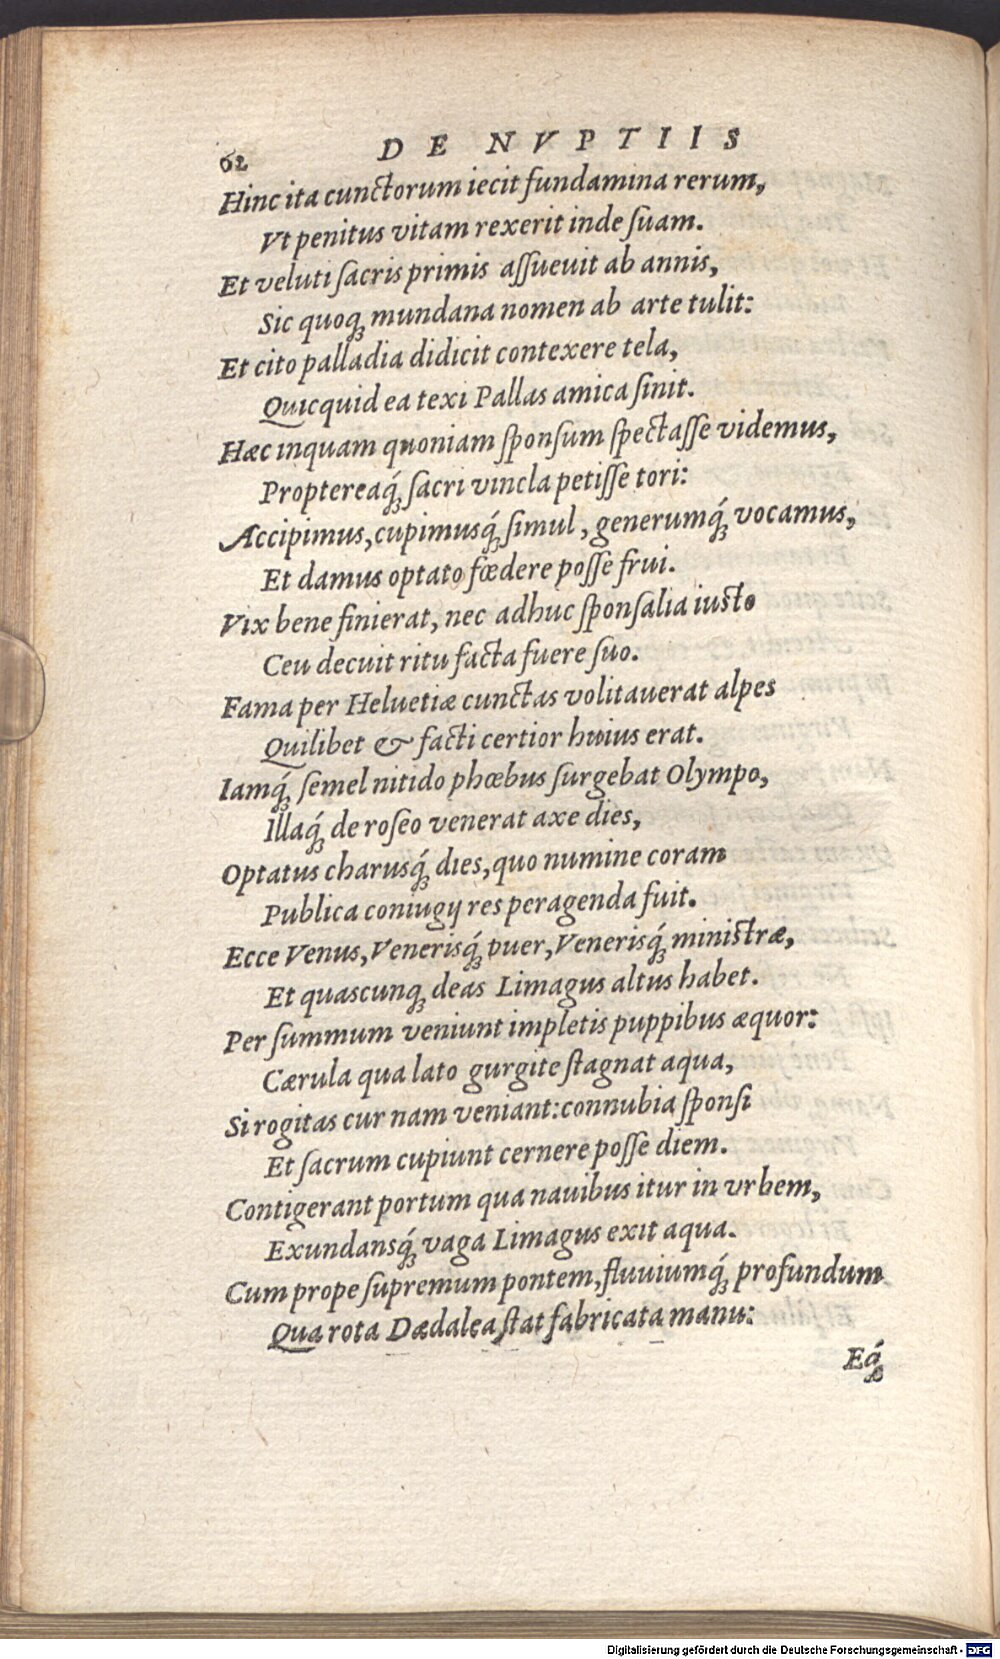 62 DE NVPTIIS
Hinc ita cunctorum iecit fundamina rerum,
Vt penitus vitam rexerit inde ſuam.
Et veluti ſacris primis aſſueuit ab annis,
Sic quoq́ mundana nomen ab arte tulit:
Et cito palladia didicit contexere tela,
Quicquid ea texi Pallas amica ſinit.
Hæc inquam quoniam ſponſum ſpectaſſe videmus,
Proptereaq́ ſacri vincla petiſſe tori:
Accipimus, cupimusq́ ſimul, generumq́ vocamus,
Et damus optato fœdere poſſe frui.
Vix bene finierat, nec adhuc ſponſalia iusto
Ceu decuit ritu facta fuere ſuo.
Fama per Heluetiæ cunctas volitauerat alpes
Quilibet & facti certior huius erat.
Iamq́ ſemel nitido phœbus ſurgebat Olympo,
Illaq́ de roſeo venerat axe dies,
Optatus charusq́ dies, quo numine coram
Publica coniugij res peragenda fuit.
Ecce Venus, Venerisq́ puer, Venerisq́ ministræ,
Et quascunq́ deas Limagus altus habet.
Per ſummum veniunt impletis puppibus æquor:
Cærula qua lato gurgite ſtagnat aqua,
Si rogitas cur nam veniant: connubia ſponſi
Et ſacrum cupiunt cernere poſſe diem.
Contigerant portum qua nauibus itur in vrbem,
Exundansq́ vaga Limagus exit aqua.
Cum prope ſupremum pontem, fluuiumq́ profundum
Qua rota Dædalea ſtat fabricata manu:
Eq́
Digitalisierung gefördert durch die Deutsche Forschungsgemeinschaft - DFG